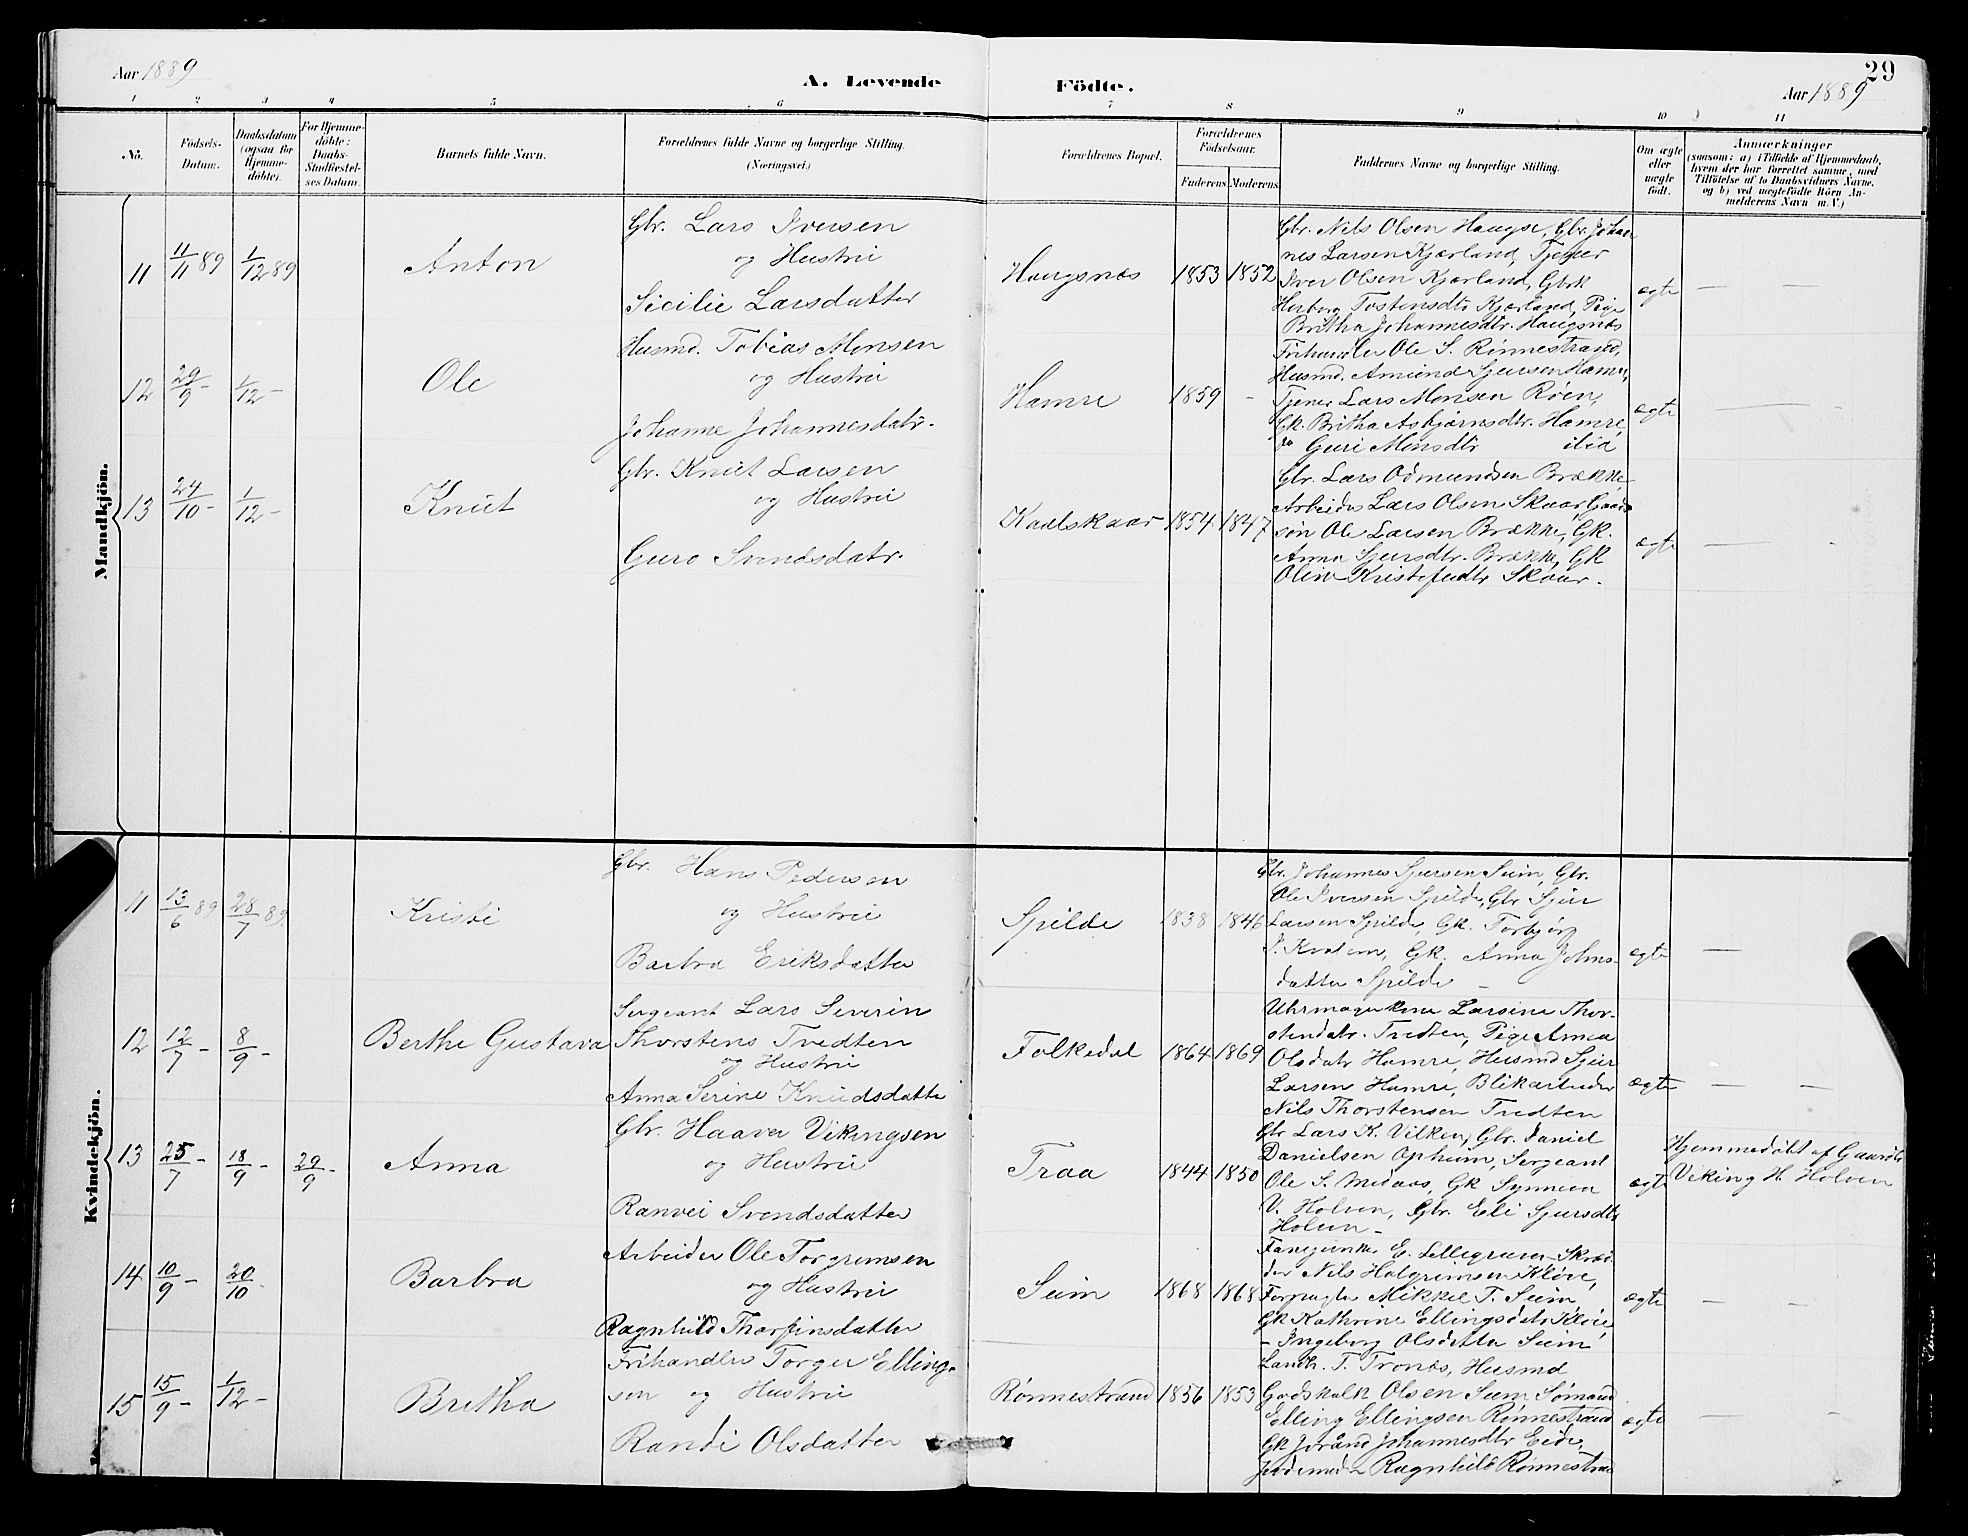 Aar 1889
A. Levende
Födte.
29
Aar 1889
1 2 3 4 5 6 7 8 9 10 11
No.
Födsels-
Datum.
Daabsdatum
(ogsaa for
Hjemme-
döbte).
For Hjemme-
döbte:
Daabs-
Stadfæstel-
ses Datum.
Barnets fulde Navn.
Forældrenes fulde Navne og borgerlige Stilling.
(Næringsvei.)
Forældrenes Bopæl.
Forældrenes
Födselsaar.
Faderens. Moderens.
Faddernes Navne og borgerlige Stilling.
Om ægte
eller
uægte
födt.
Anmærkninger
(saasom: a) i Tilfælde af Hjemmedaab,
hvem der har forrettet samme, med
Tilföielse af to Daabsvidners Navne,
og b) ved uægtefödte Börn An-
melderens Navn m. V.)
Mandkjön.
11
11/11 89
1/12 89
Anton
Gbr. Lars Iversen
og Hustru
Sicilie Larsdatter
Haugsnæs
1853
1852
Gbr. Nils Olsen Haugse, Gbr. Johan
nes Larsen Kjærland, Tjener
Iver Olsen Kjærland, Gbrk
Herborg Tostensdtr Kjærland, Pige
Britha Johannesdtr. Haugsnæs
ægte
12
29/9 -
1/12 -
Ole
Husmd. Tobias Monsen
og Hustru
Johanne Johannesdatr.
Hamre
1859
-
Frihandler Ole S. Rønnestrand,
Husmd. Amund Sjursen Hamre,
Tjener Lars Monsen Røen,
Gk. Britha Asbjørnsdtr. Hamre
Do Guri Monsdtr ibid
ægte
13
24/10 -
1/12 -
Knut
Gbr. Knut Larsen
og Hustru
Guro Svendsdatr.
Kaalskaar
1854
1847
Gbr. Lars Odmundsen Brække
Arbeider Lars Olsen Skaar, Gaard
søn Ole Larsen Brække, Gk.
Anna Sjursdtr. Brække, Gk
Olin Kristofersdtr Skaar.
ægte
Kvindekjön.
11
13/6 89
28/7 89
Kristi
Gbr. Hans Pedersen
og Hustru
Barbra Eriksdatter
Spilde
1838
1846
Gbr. Johannes Sjursen Seim, Gbr.
Ole Iversen Spilde, Gbr Sjur
Larsen Spilde, Gk. Torbjør
Gk. Anna Johns-
datter Spilde
ægte
12
12/7 -
8/9 -
Berthe Gustava
Sergeant Lars Severin
Thorstens Tvedten
og Hustru
Anna Serine Knudsdatter
Folkedal
1864
1869
Larsine Thor-
stendatr. Tvedten, Pige Anna
Olsdatr Hamre, Husmd Sjur
Larsen Hamre, Blikarbeider
Nils Thorstensen Tvedten
ægte
13
25/7 -
18/9 -
29/9 -
Anna
Gbr. Haaver Vikingsen
og Hustru
Ranvei Svendsdatter
Traa
1844
1850
Gbr Lars K. Vilken, Gbr. Daniel
Danielsen Opheim, Sergeant
Ole S. Medaas, Gk Synneva
V. Holven, Gbr. Eli Sjursdtr
Holven -
ægte
Hjemmedøbt af Gaardbr
Viking H. Holven
14
10/9 -
20/10 -
Barbra
Arbeider Ole Torgrimsen
og Hustru
Ragnhild Thorfinsdatter
Seim
1868
1868
Fanejunker E. Lillegraven Skræd
der Nils Halgrimsen Kløve,
Forpagter Mikkel T. Seim
Gk Kathrine Ellingsdatr Kløve,
- Ingeborg Olsdatter Seim
ægte
15
15/9 -
1/12 -
Britha
Frihandler Torger Elling-
sen og Hustru
Randi Olsdatter
Rønnestrand
1856
1853
Landh. T. Tronæs, Husmd
Godskalk Olsen Seim Sømand
Elling Ellingsen Rønnestrand
Gk Jorånd Johannesdtr Eide,
Jordemoder Ragnhild Rønnestrand
ægte